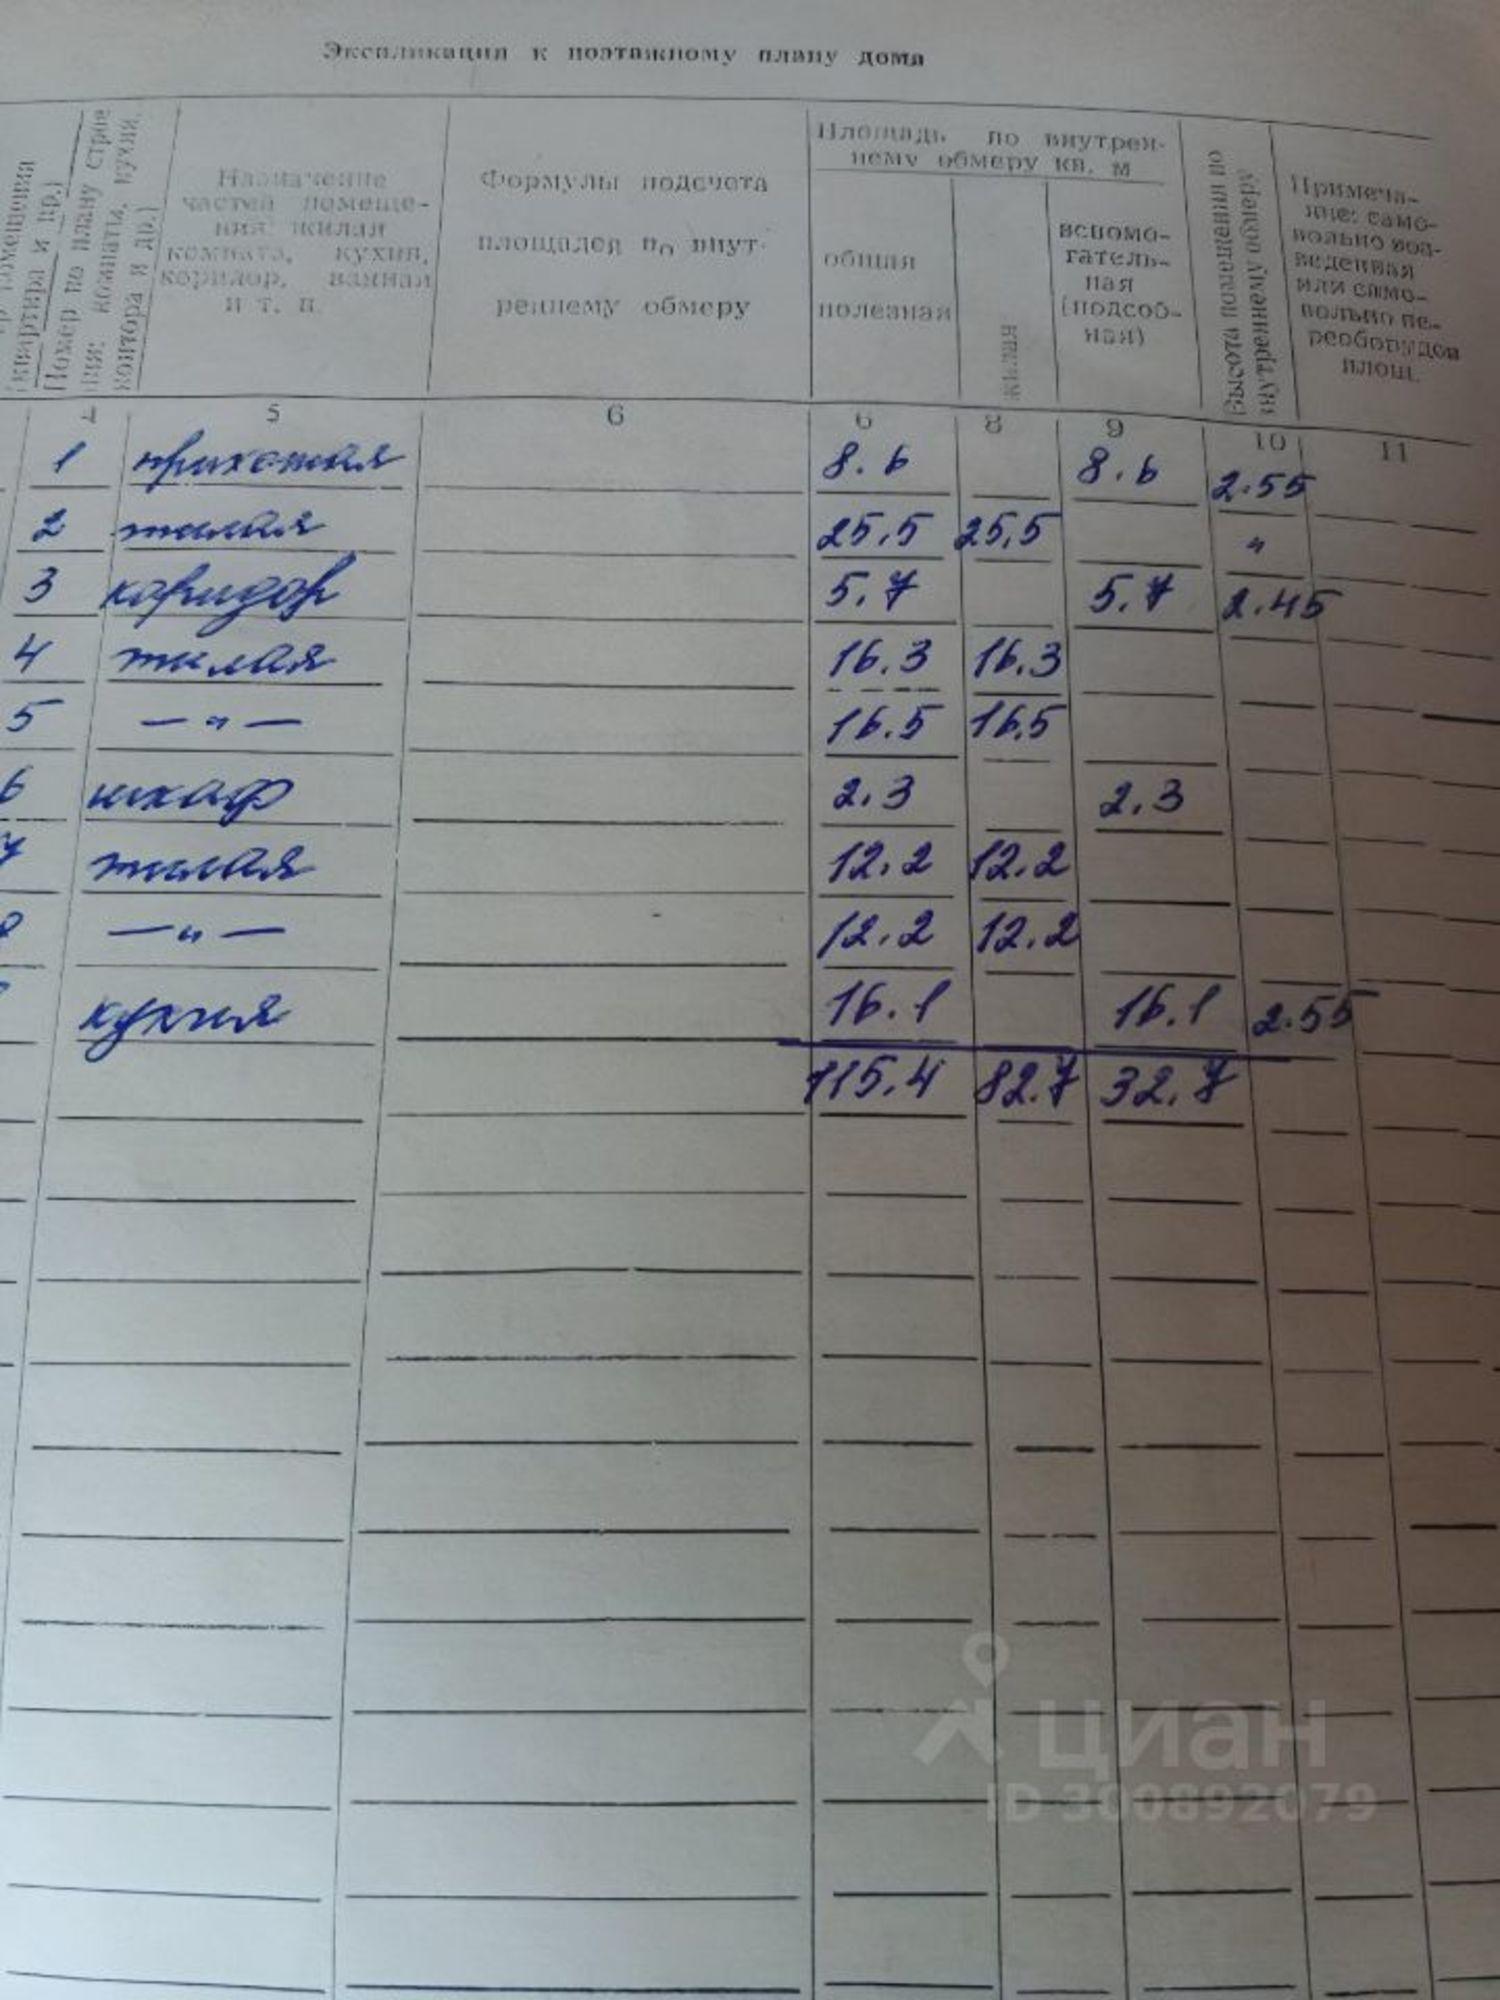 Экспликация к поэтажному плану дома
помещения
(квартира и пр.)
Номер по плану строе
ния: комнаты, кухни,
контора и др.)
Назначение
частей помеще-
ния: жилая
комната, кухня,
коридор, ванная
и т. п.
Формулы подсчета
площадей по внут-
реннему обмеру
Площадь по внутрен-
нему обмеру кв. м
общая
полезная
вспомо-
гатель-
ная
(подсоб-
ная)
Высота помещения по
внутреннему обмеру
Примеча-
ние: само-
вольно воз-
веденная
или само-
вольно пе-
реоборудов
площ.
4 5 6 6 8 9 10 11
1 прихожая 8.6 8.6 2.55
2 жилая 25.5 25.5 "
3 коридор 5.7 5.7 2.45
4 жилая 16.3 16.3
5 — " — 16.5 16.5
6 шкаф 2.3 2.3
7 жилая 12.2 12.2
8 — " — 12.2 12.2
кухня 16.1 16.1 2.55
115.4 82.7 32.7
циан
ID 300892079